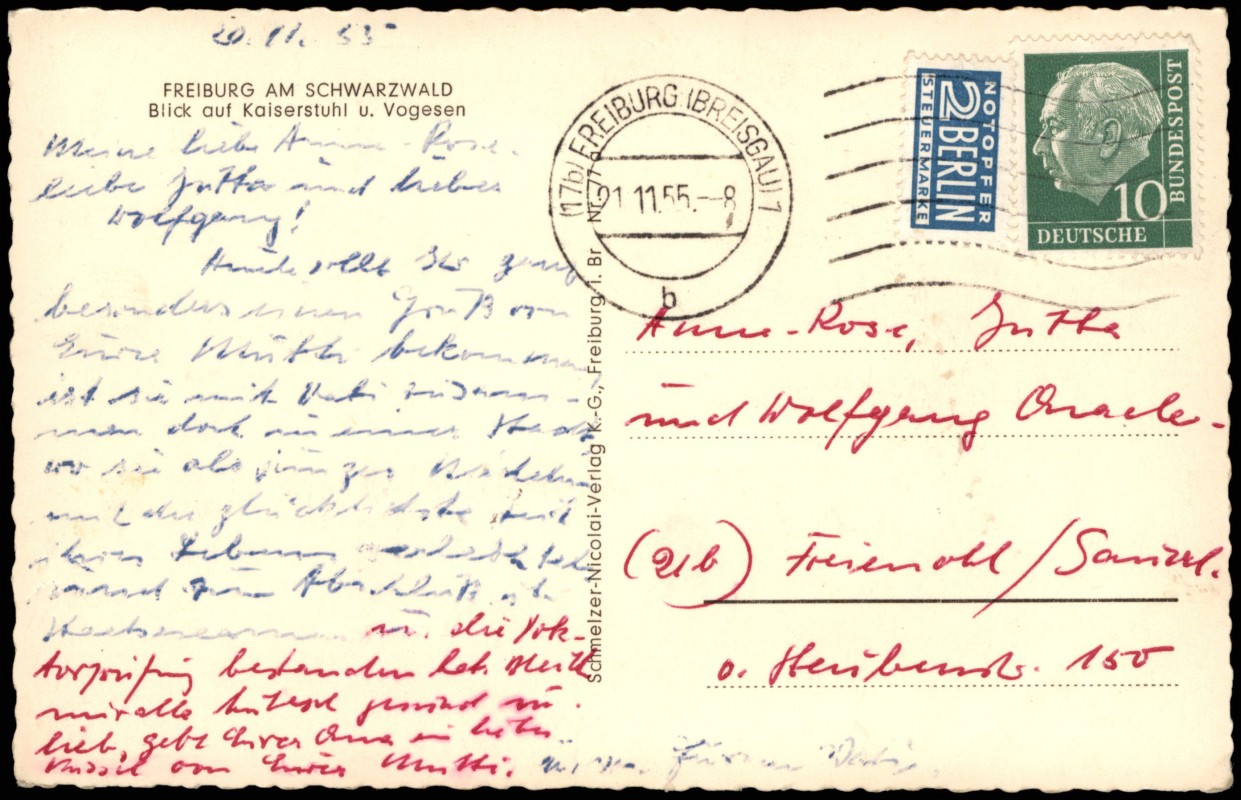 20. 11. 55
FREIBURG AM SCHWARZWALD
Blick auf Kaiserstuhl u. Vogesen
Meine liebe Anne-Rose,
liebe Jutta und lieber
Wolfgang!
Heute sollt Ihr ganz
besonders einen Gruß von
Eurer Mutti bekommen,
ist sie mit Vati zusam-
men doch in einer Stadt
wo sie als junges Mädchen
mit die glücklichste Zeit
ihres Lebens
zum Abschluß
Staatsexamen u. die Dok-
torprüfung bestanden hat. Bleibt
mir alle hübsch gesund u.
lieb, gebt Eurer Oma ein liebes
Küssel von Eurer Mutti.
u. Eurem Vati.
Schmelzer-Nicolai-Verlag K.-G., Freiburg i. Br
(17b) FREIBURG (BREISGAU) 1
21.11.55.-8
b
NOTOPFER
2 BERLIN
STEUERMARKE
10
DEUTSCHE
BUNDESPOST
Anne-Rose, Jutta
und Wolfgang
(21b) Freienohl / Sauerl.
150